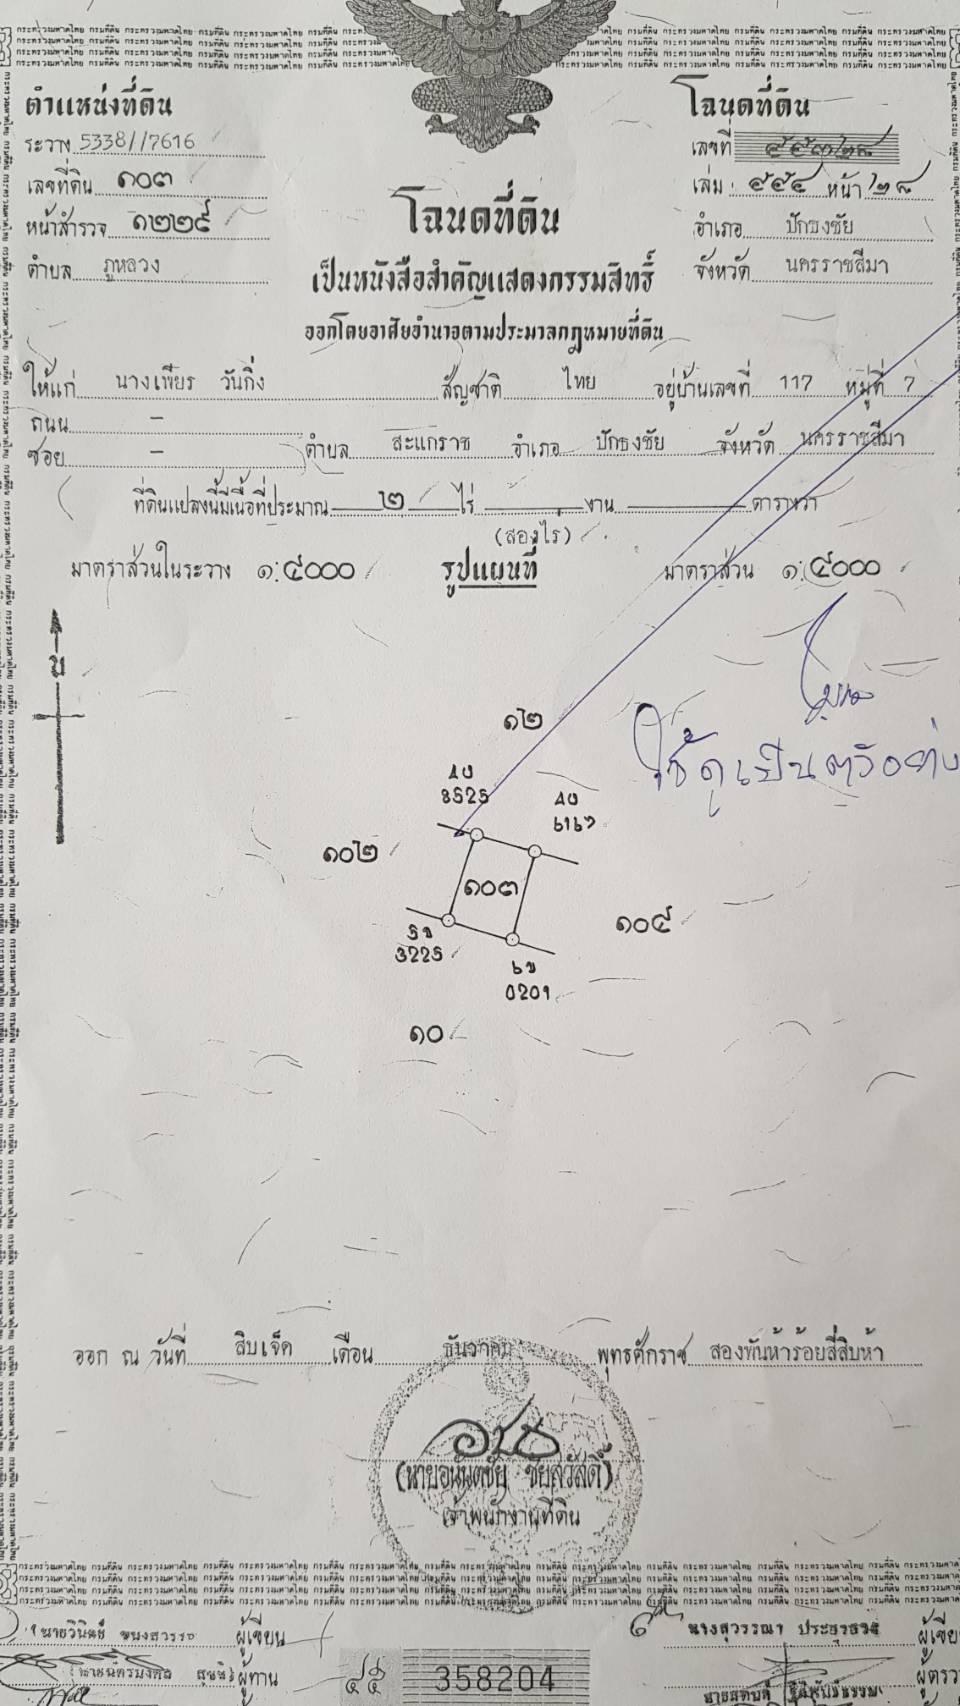 กระทรวงมหาดไทย กรมที่ดิน กระทรวงมหาดไทย กรมที่ดิน กระทรวงมหาดไทย กรมที่ดิน
ตำแหน่งที่ดิน
ระวาง 5338//7616
เลขที่ดิน ๑๐๓
หน้าสำรวจ ๑๒๒๙
ตำบล ภูหลวง
โฉนดที่ดิน
เลขที่
เล่ม ๔๕๔ หน้า ๒๘
อำเภอ ปักธงชัย
จังหวัด นครราชสีมา
โฉนดที่ดิน
เป็นหนังสือสำคัญแสดงกรรมสิทธิ์
ออกโดยอาศัยอำนาจตามประมวลกฎหมายที่ดิน
ให้แก่ นางเพียร วันกิ่ง สัญชาติ ไทย อยู่บ้านเลขที่ 117 หมู่ที่ 7
ถนน –
ซอย – ตำบล สะแกราช อำเภอ ปักธงชัย จังหวัด นครราชสีมา
ที่ดินแปลงนี้มีเนื้อที่ประมาณ ๒ ไร่ งาน ตารางวา
(สองไร่)
มาตราส่วนในระวาง ๑:๔๐๐๐ รูปแผนที่ มาตราส่วน ๑:๔๐๐๐
น
ใช้ดูเป็นตัวอย่าง
๑๒
8525
๑๐๒
๑๐๓
๑๐๔
3225
0201
๑๐
ออก ณ วันที่ สิบเจ็ด เดือน ธันวาคม พุทธศักราช สองพันห้าร้อยสี่สิบห้า
(นายอนันตชัย ชัยสวัสดิ์)
เจ้าพนักงานที่ดิน
กระทรวงมหาดไทย กรมที่ดิน กระทรวงมหาดไทย กรมที่ดิน กระทรวงมหาดไทย กรมที่ดิน
ผู้เขียน
นางสุวรรณา
ผู้ทาน
358204